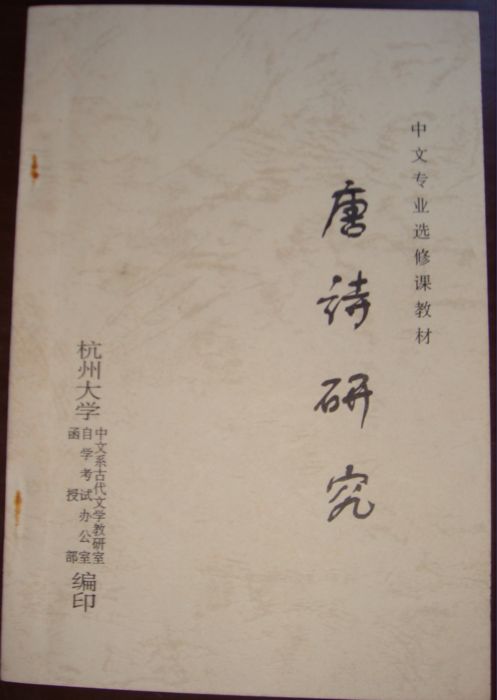 中文专业选修课教材
唐诗研究
杭州大学
中文系古代文学教研室
自学考试办公室
函授部
编印